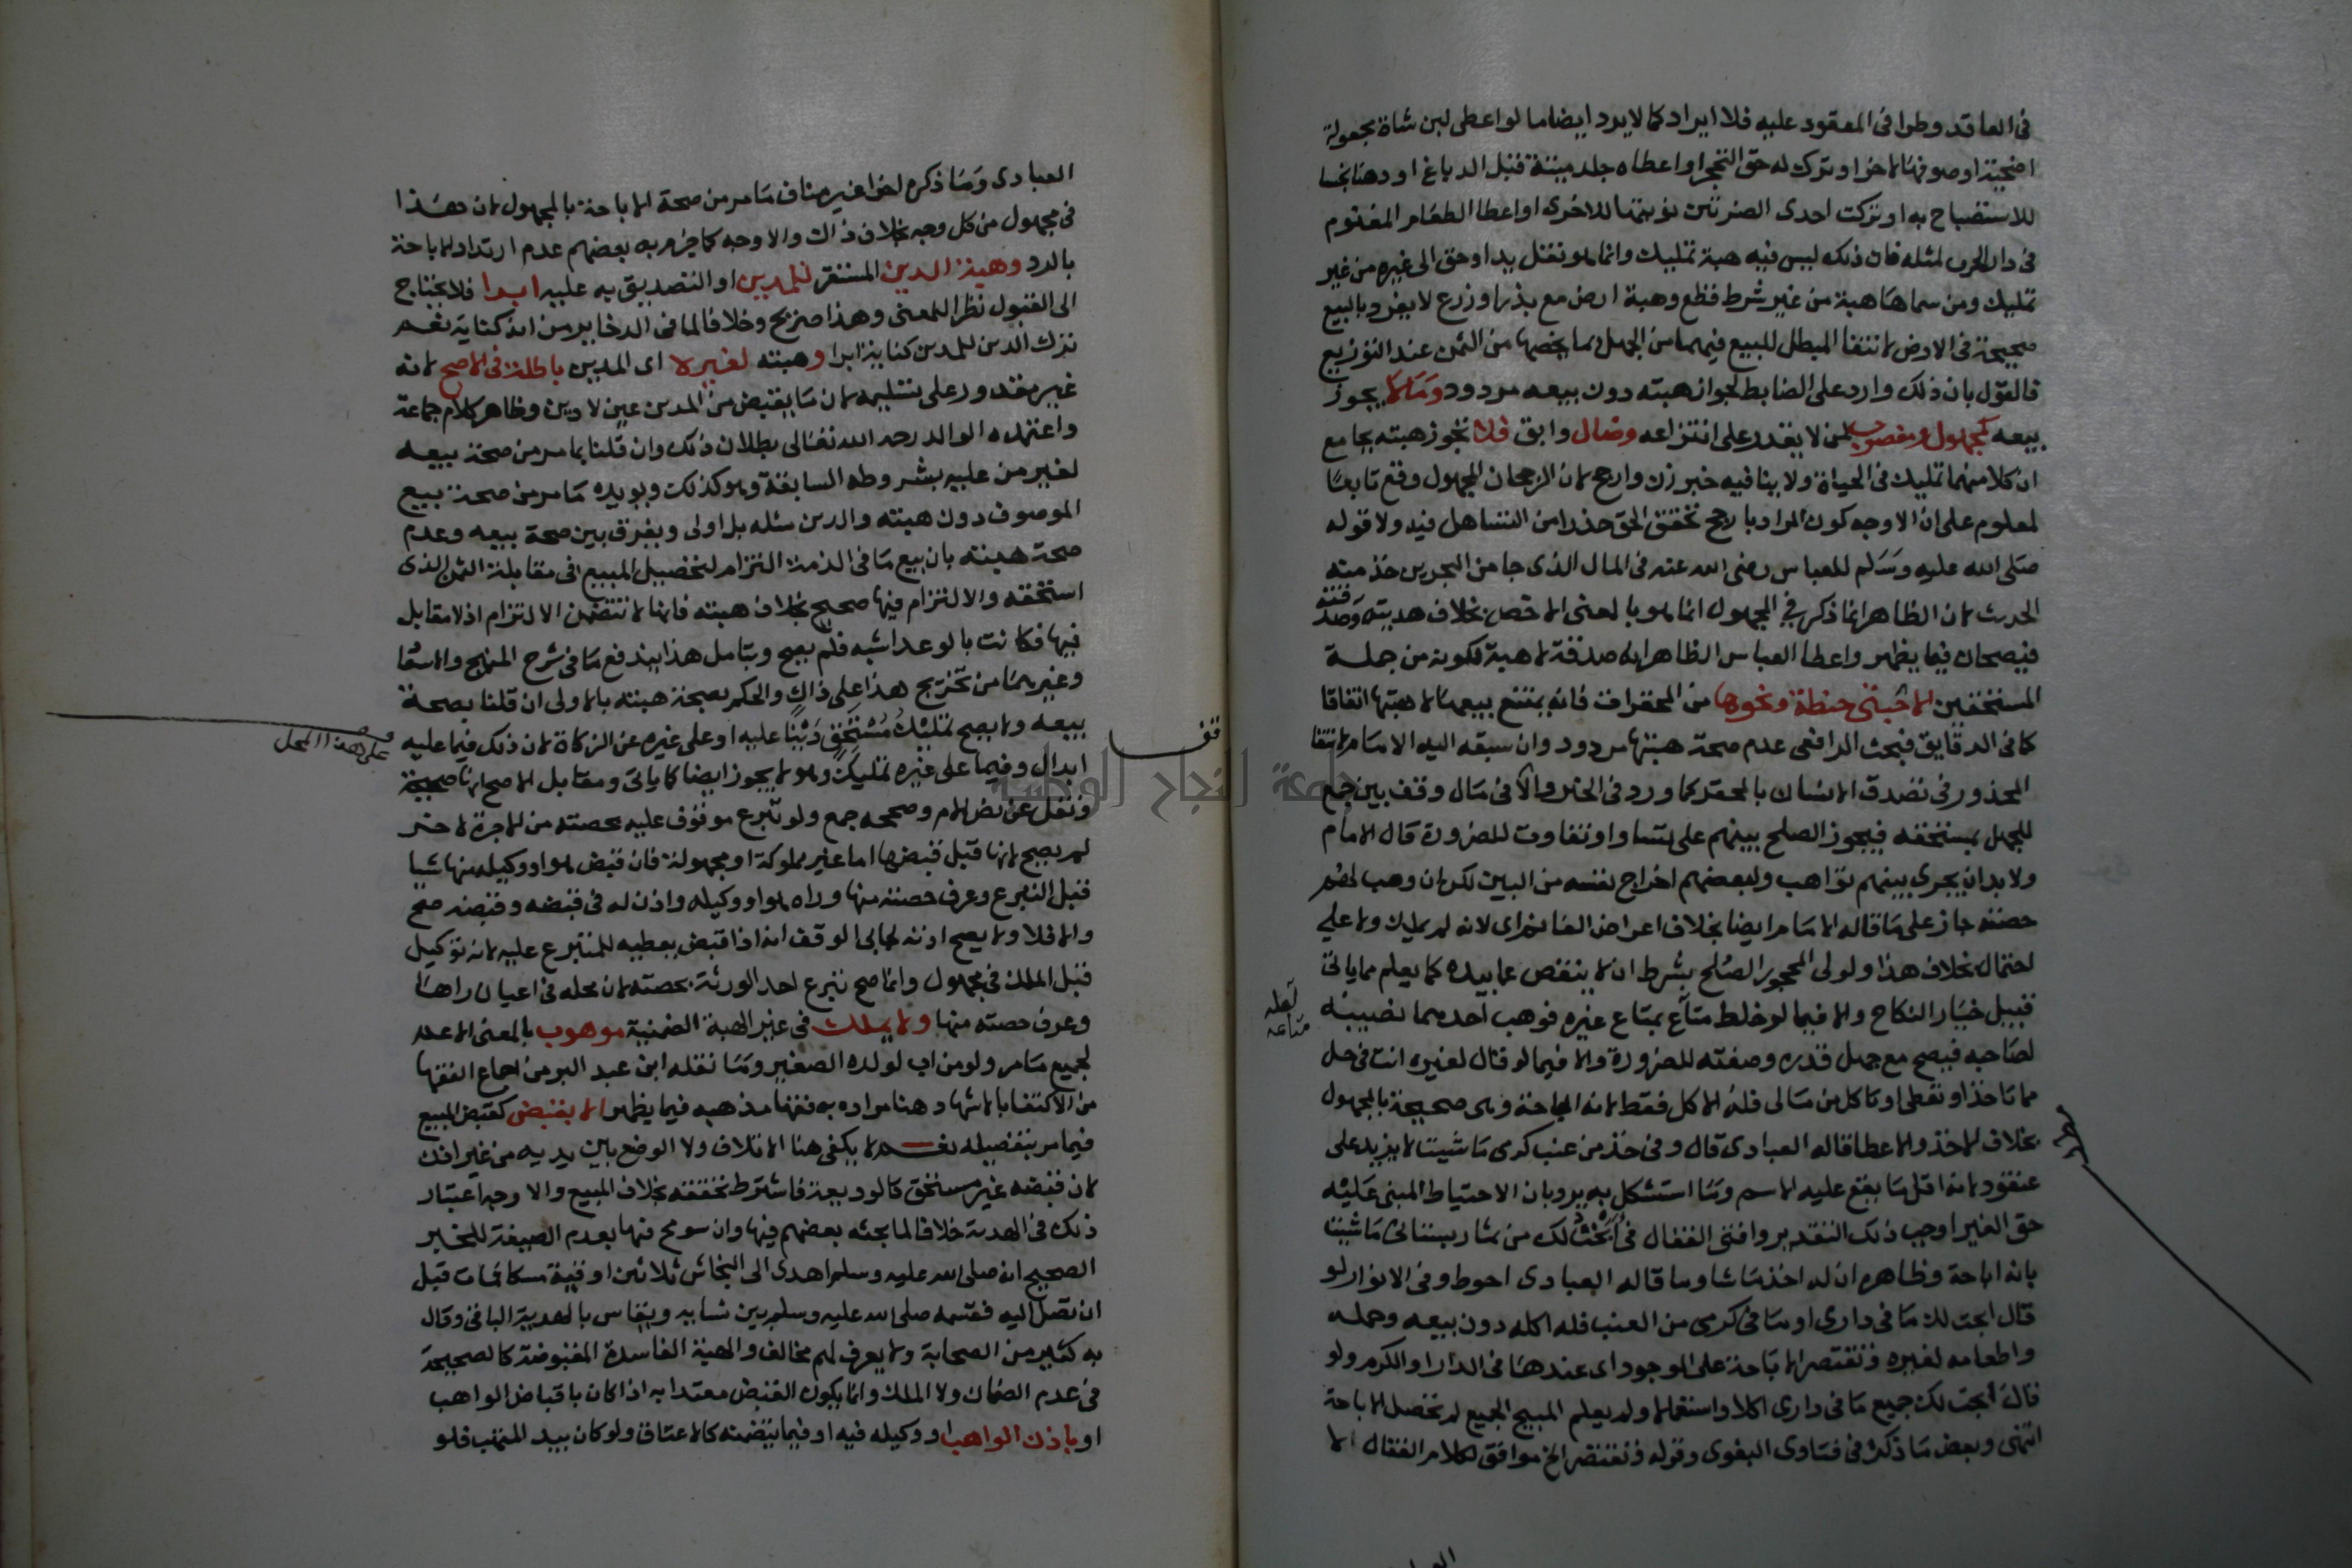 فى العاقد وطرا فى المعقود عليه فلا ايراد كما لا يرد ايضا ما لو اعطى لبن شاة مجعولة
اضحية او صوفها لاخر او ترك له حق التحجر او اعطاه جلد ميتة قبل الدباغ او دهنا نجسا
للاستصباح به او تركت احدى الضرتين نوبتها للاخرى او اعطا الطعام المغنوم
فى دار الحرب لمثله فان ذلك ليس فيه هبة تمليك وانما هو نقل يد او حق الى غيره من غير
تمليك ومن سماها هبة من غير شرط فظع وهبة ارض مع بذر او زرع لا يفرد بالبيع
صحيحة فى الارض لانتفا المبطل للبيع فيهما من الجهل بما يخصها من الثمن عند التوزيع
فالقول بان ذلك وارد على الضابط لجواز هبته دون بيعه مردود وما لا يجوز
بيعه كمجهول ومغصوب لمن لا يقدر على انتزاعه وضال وابق فلا تجوز هبته بجامع
ان كلا منهما تمليك فى الحياة ولا ينافيه خبر زن وارجح لان الرجحان المجهول وقع تابعا
لمعلوم على ان الاوجه كون المراد بارجح تحقق الحق حذرا من التساهل فيه ولا قوله
صلى الله عليه وسلم للعباس رضى الله عنه فى المال الذى جا من البحرين خذ منه
الحديث لان الظاهر انما ذكر فى المجهول انما هو بالمعنى الاخص بخلاف هديته وصدقته
فيصحان فيما يظهر واعطا العباس الظاهر انه صدقة لا هبة لكونه من جملة
المستحقين الا حبتى حنطة ونحوها من المحقرات فانه يمتنع بيعها لا هبتها اتفاقا
كما فى الدقايق فبحث الرافعى عدم صحة هبتها مردود وان سبقه اليه الامام لانتفا
المحذور فى تصدق الانسان بالمحقر كما ورد فى الخبر والا فى مال وقف بين جمع
للجهل بمستحقه فيجوز الصلح بينهم على تساو او تفاوت للضرورة قال الامام
ولا بد ان يجرى بينهم تواهب ولبعضهم اخراج نفسه من البين لكن ان وهب لهم
حصته جاز على ما قاله الامام ايضا بخلاف اعراض الغانم اى لانه لم يملك ولا على
احتمال بخلاف هذا ولولى المحجور الصلح بشرط ان لا ينقص عما بيده كما يعلم مما ياتى
قبيل خيار النكاح والا فيما لو خلط متاع بمتاع غيره فوهب احدهما نصيبه
لعله
متاعه
لصاحبه فيصح مع جهل قدره وصفته للضرورة والا فيما لو قال لغيره انت فى حل
مما تاخذ او تعطى او تاكل من مالى فله الاكل فقط لانه اباحة وهى صحيحة بالمجهول
بخلاف الاخذ والاعطا قاله العبادى قال وفى خذ من عنب كرمى ما شيت لا يزيد على
عنقود لانه اقل ما يقع عليه الاسم وما استشكل به يرد بان الاحتياط المبنى عليه
حق الغير اوجب ذلك التقدير وافتى القفال فى ابحت لك من ثمار بستانى ما شيت
بانه اباحة وظاهره ان له اخذ ما شا وما قاله العبادى احوط وفى الانوار لو
قال ابحت لك ما فى دارى او ما فى كرمى من العنب فله اكله دون بيعه وحمله
واطعامه لغيره وتقتصر الاباحة على الموجود اى عندها فى الدار او الكرم ولو
قال ابحت لك جميع ما فى دارى اكلا واستعمالا ولم يعلم المبيح الجميع لم تحصل الاباحة
انتهى وبعض ما ذكره فى فتاوى البغوى وقوله وتقتصر الخ موافق لكلام القفال لا
العبادى وما ذكره اخرا غير مناف ما مر من صحة الاباحة بالمجهول لان هذا
فى مجهول من كل وجه بخلاف ذاك والاوجه كما جزم به بعضهم عدم ارتداد الاباحة
بالرد وهبة الدين المستقر للمدين او التصديق به عليه ابرا فلا يحتاج
الى القبول نظرا للمعنى وهذا صريح وخلافا لما فى الذخاير من انه كناية نعم
ترك الدين للمدين كناية ابرا وهبته لغيره اى المدين باطلة فى الاصح لانه
غير مقدور على تسليمه لان ما يقبض من المدين عين لا دين وظاهر كلام جماعة
واعتمده الوالد رحمه الله تعالى بطلان ذلك وان قلنا بما مر من صحة بيعه
لغير من عليه بشروطه السابقة وهو كذلك ويويده ما مر من صحة بيع
الموصوف دون هبته والدين مثله بل اولى ويفرق بين صحة بيعه وعدم
صحة هبته بان بيع ما فى الذمة التزام لتحصيل المبيع فى مقابلة الثمن الذى
استحقه والالتزام فيها صحيح بخلاف هبته فانها لا تتضمن الالتزام اذ لا مقابل
فيها فكانت بالوعد اشبه فلم يصح وبتامل هذا يندفع ما فى شرح المنهج والاسعا
وغيرهما من تخريج هذا على ذاك والحكم بصحة هبته بالاولى ان قلنا بصحة
بيعه ولا يصح تمليك مستحق دينا عليه او على غيره عن الزكاة لان ذلك فيما عليه
على هذا المحل
ابدال وفيما على غيره تمليك وهو لا يجوز ايضا كما ياتى ومقابل الاصح انها صحيحة
ونقل عن نص الام وصححه جمع ولو تبرع موقوف عليه بحصته من الاجرة لاخر
لم يصح لانها قبل قبضها اما غير مملوكة او مجهولة فان قبض هو او وكيله منها شيا
قبل التبرع وعرف حصته منها وراه هو او وكيله واذن له فى قبضه وقبضه صح
والا فلا ولا يصح اذنه لجابى الوقف انه اذا قبض يعطيه للمتبرع عليه لانه توكيل
قبل الملك فى مجهول وانما صح تبرع احد الورثة بحصته لان محله فى اعيان راها
وعرف حصته منها ولا يملك فى غير الهبة الضمنية موهوب بالمعنى الاعم
لجميع ما مر ولو من اب لولده الصغير وما نقله ابن عبد البر من اجماع الفقها
من الاكتفا بالاشهاد هنا مراده به فقها مذهبه فيما يظهر الا بقبض كقبض المبيع
فيما مر بتفصيله نعم لا يكفى هنا الاتلاف ولا الوضع بين يديه من غير اذن
لان قبضه غير مستحق كالوديعة فاشترط تحققه بخلاف المبيع والاوجه اعتبار
ذلك فى الهدية خلافا لما بحثه بعضهم فيها وان سومح فيها بعدم الصيغة للخبر
الصحيح انه صلى الله عليه وسلم اهدى الى النجاشى ثلاثين اوقية مسكا فمات قبل
ان تصل اليه فقسمه صلى الله عليه وسلم بين نسايه ويقاس بالهدية الباقى وقال
به كثير من الصحابة ولا يعرف لهم مخالف والهبة الفاسدة المقبوضة كالصحيحة
فى عدم الضمان ولا الملك وانما يكون القبض معتدا به اذا كان باقباض الواهب
او باذن الواهب او وكيله فيه او فيما يتضمنه كالاعتاق ولو كان بيد المتهب فلو
جامعة النجاح الوطنية